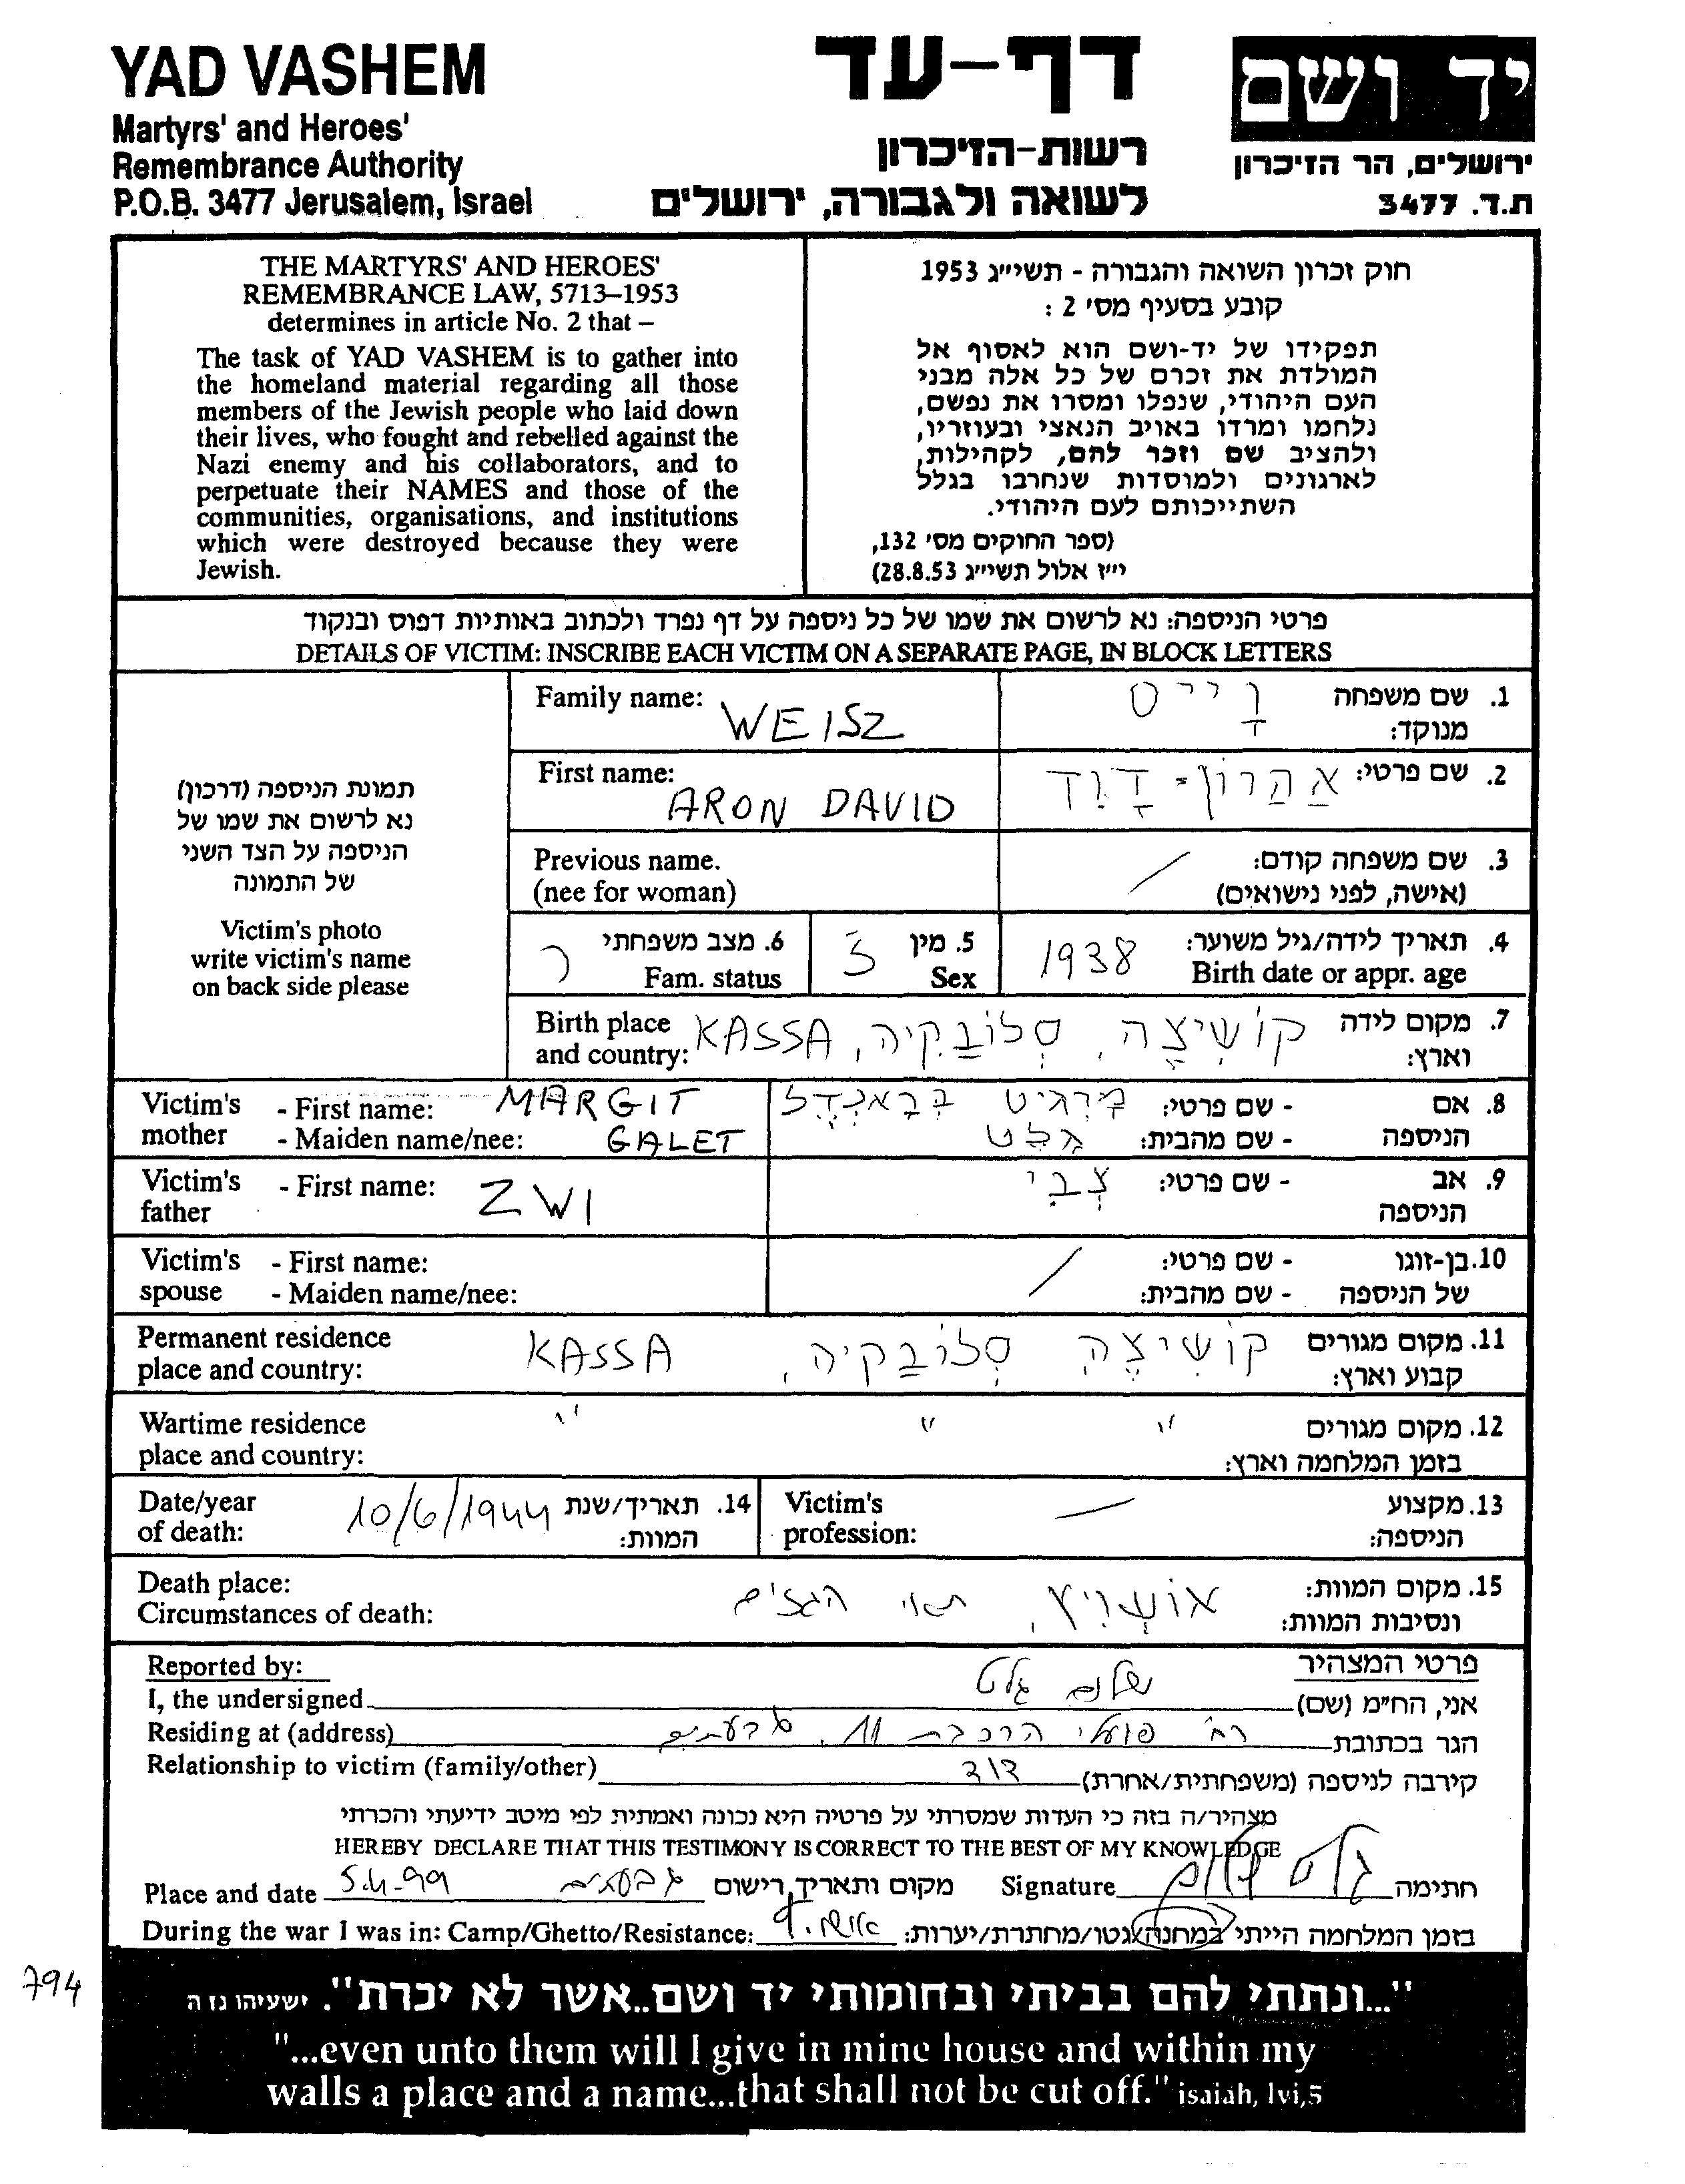 YAD VASHEM
Martyrs' and Heroes'
Remembrance Authority
P.O.B. 3477 Jerusalem, Israel
דף-עד
רשות-הזיכרון
לשואה ולגבורה, ירושלים
יד ושם
ירושלים, הר הזיכרון
ת.ד. 3477
THE MARTYRS' AND HEROES'
REMEMBRANCE LAW, 5713–1953
determines in article No. 2 that –
The task of YAD VASHEM is to gather into
the homeland material regarding all those
members of the Jewish people who laid down
their lives, who fought and rebelled against the
Nazi enemy and his collaborators, and to
perpetuate their NAMES and those of the
communities, organisations, and institutions
which were destroyed because they were
Jewish.
חוק זכרון השואה והגבורה - תשי"ג 1953
קובע בסעיף מס' 2 :
תפקידו של יד-ושם הוא לאסוף אל
המולדת את זכרם של כל אלה מבני
העם היהודי, שנפלו ומסרו את נפשם,
נלחמו ומרדו באויב הנאצי ובעוזריו,
ולהציב שם וזכר להם, לקהילות,
לארגונים ולמוסדות שנחרבו בגלל
השתייכותם לעם היהודי.
(ספר החוקים מס' 132,
י"ז אלול תשי"ג 28.8.53)
פרטי הניספה: נא לרשום את שמו של כל ניספה על דף נפרד ולכתוב באותיות דפוס ובנקוד
DETAILS OF VICTIM: INSCRIBE EACH VICTIM ON A SEPARATE PAGE, IN BLOCK LETTERS
תמונת הניספה (דרכון)
נא לרשום את שמו של
הניספה על הצד השני
של התמונה
Victim's photo
write victim's name
on back side please
Family name: WEISZ
1. שם משפחה מנוקד: וַייס
First name: ARON DAVID
2. שם פרטי: אַהֲרוֹן-דָוִד
Previous name.
(nee for woman)
3. שם משפחה קודם: /
(אישה, לפני נישואים)
4. תאריך לידה/גיל משוער: 1938
Birth date or appr. age
5. מין ז
Sex
6. מצב משפחתי ר
Fam. status
Birth place
and country:
7. מקום לידה
וארץ: קוֹשִיצֶה, סְלוֹבַקִיה, KASSA
Victim's mother - First name: MARGIT
- Maiden name/nee: GALET
8. אם הניספה - שם פרטי: מַרְגִיט בְּרַאנְדֶל
- שם מהבית: גלט
Victim's father - First name: ZWI
9. אב הניספה - שם פרטי: צְבִי
Victim's spouse - First name:
- Maiden name/nee:
10. בן-זוגו של הניספה - שם פרטי: /
- שם מהבית:
Permanent residence
place and country:
11. מקום מגורים
קבוע וארץ: קוֹשִיצֶה, סְלוֹבַקִיה, KASSA
Wartime residence
place and country:
12. מקום מגורים
בזמן המלחמה וארץ: " " "
Date/year
of death:
14. תאריך/שנת המוות: 10/6/1944
Victim's
profession:
13. מקצוע הניספה: —
Death place:
Circumstances of death:
15. מקום המוות:
ונסיבות המוות: אוֹשְוִיץ, תאי הגזים
Reported by:
פרטי המצהיר
I, the undersigned אני, הח"מ (שם) שלום גלט
Residing at (address) הגר בכתובת רח' פועלי הרכבת 11, גבעתיים
Relationship to victim (family/other) קירבה לניספה (משפחתית/אחרת) דוד
מצהיר/ה בזה כי העדות שמסרתי על פרטיה היא נכונה ואמתית לפי מיטב ידיעתי והכרתי
HEREBY DECLARE THAT THIS TESTIMONY IS CORRECT TO THE BEST OF MY KNOWLEDGE
Place and date 5.4.99 גבעתיים מקום ותאריך רישום Signature גלט שלום חתימה
During the war I was in: Camp/Ghetto/Resistance: בזמן המלחמה הייתי במחנה/גטו/מחתרת/יערות:
794
"...ונתתי להם בביתי ובחומותי יד ושם..אשר לא יכרת". ישעיהו נו ה
"...even unto them will I give in mine house and within my
walls a place and a name...that shall not be cut off." isaiah, lvi,5